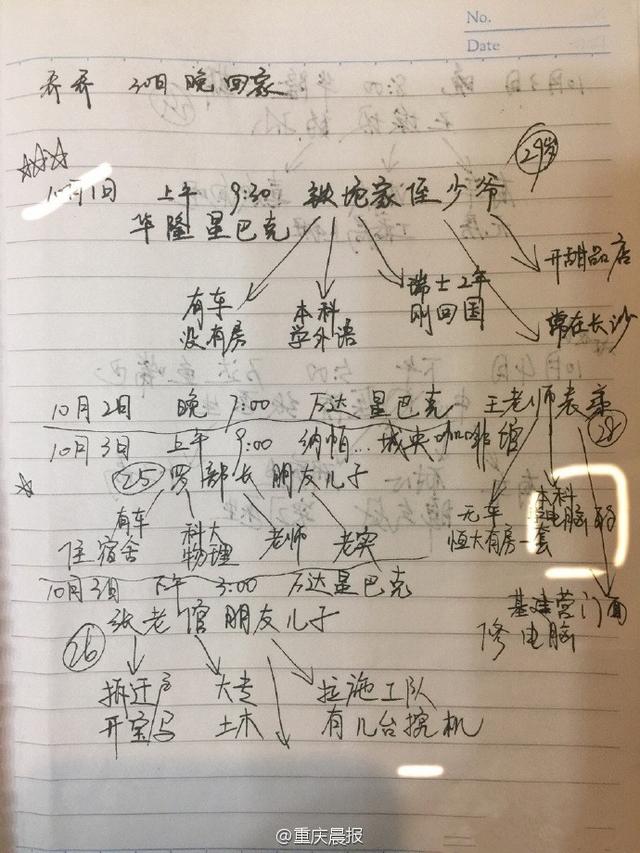 No.
Date
乔乔 30日晚回家
29岁
10月1日 上午 9:30 铁坨家侄少爷
华隆星巴克
开甜品店
有车
没有房
本科
学外语
瑞士2年
刚回国
常在长沙
10月2日 晚 7:00 万达星巴克 王老师表弟
28
10月3日 上午 9:00 纳帕...城央咖啡馆
25 罗部长 朋友儿子
有车
住宿舍
科大
物理
老师
老实
无车
恒大有房一套
本科
电脑
10月3日 下午 3:00 万达星巴克
张老馆 朋友儿子
26
基建营门面
修电脑
拆迁户
开宝马
大专
土木
拉施工队
有几台挖机
@重庆晨报